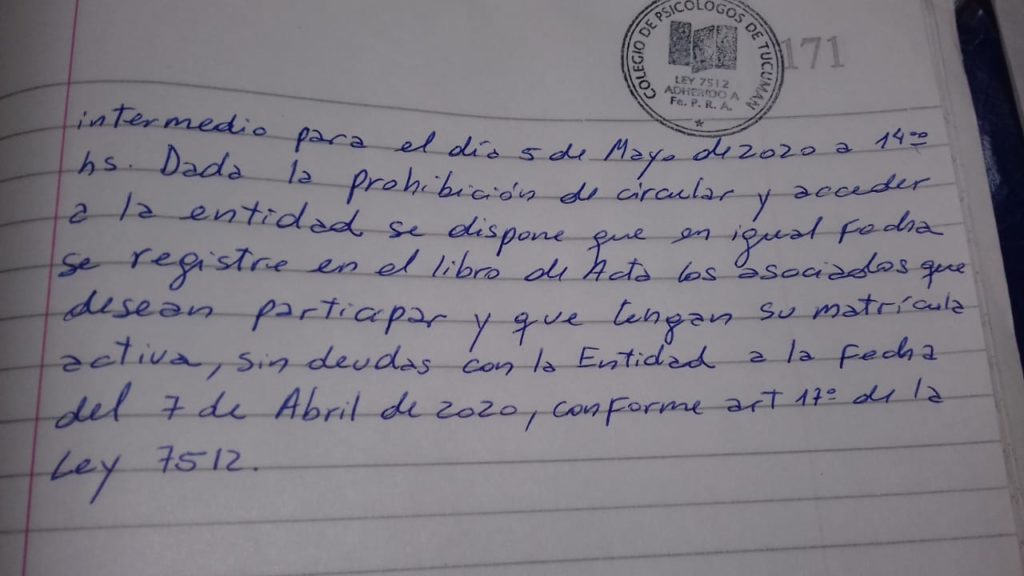 COLEGIO DE PSICOLOGOS DE TUCUMAN
LEY 7512
ADHERIDO A
Fe. P. R. A.
171
intermedio para el día 5 de Mayo de 2020 a 14⁰⁰
hs. Dada la prohibición de circular y acceder
a la entidad se dispone que en igual Fecha
se registre en el libro de Acta los asociados que
desean participar y que tengan su matrícula
activa, sin deudas con la Entidad a la Fecha
del 7 de Abril de 2020, conforme art 17º de la
Ley 7512.